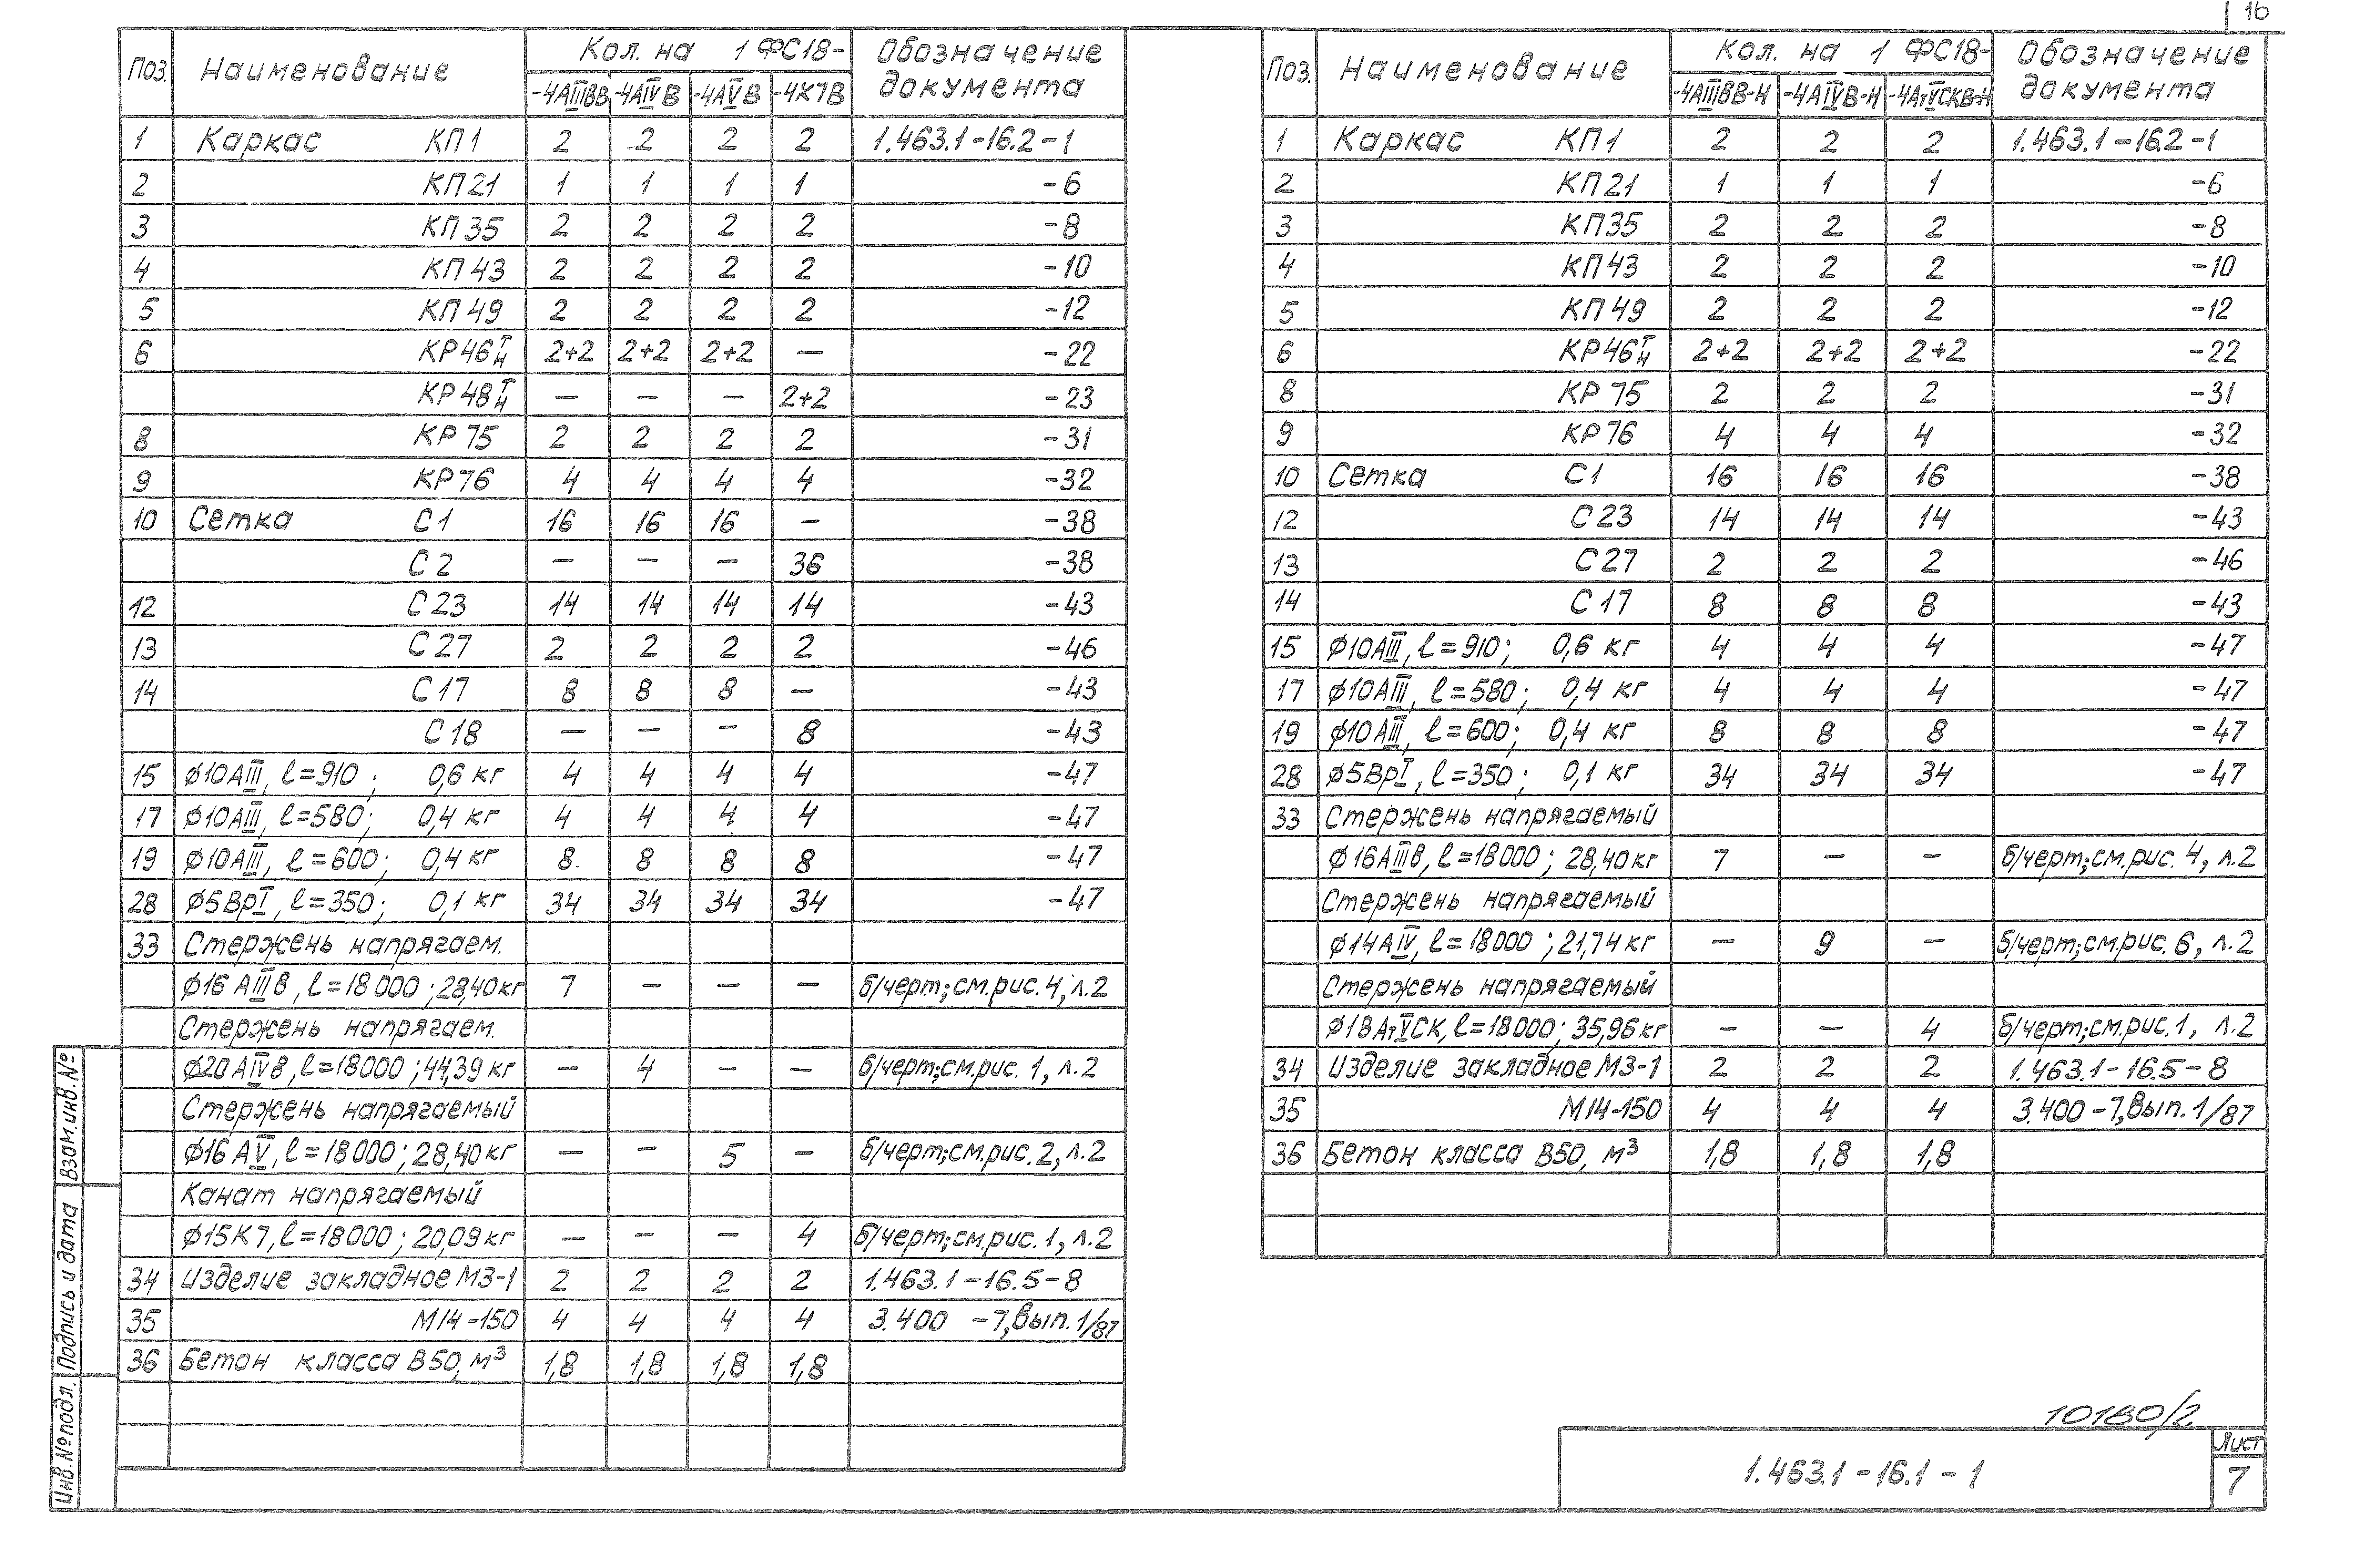 16
Поз. Наименование Кол. на 1 ФС18- Обозначение документа
-4АIIIВВ -4АIVВ -4АVВ -4К7В
1 Каркас КП1 2 2 2 2 1.463.1-16.2-1
2 КП21 1 1 1 1 -6
3 КП35 2 2 2 2 -8
4 КП43 2 2 2 2 -10
5 КП49 2 2 2 2 -12
6 КР46Т/Н 2+2 2+2 2+2 — -22
КР48Т/Н — — — 2+2 -23
8 КР75 2 2 2 2 -31
9 КР76 4 4 4 4 -32
10 Сетка С1 16 16 16 — -38
С2 — — — 36 -38
12 С23 14 14 14 14 -43
13 С27 2 2 2 2 -46
14 С17 8 8 8 — -43
С18 — — — 8 -43
15 ⌀10АIII, ℓ=910; 0,6 кг 4 4 4 4 -47
17 ⌀10АIII, ℓ=580; 0,4 кг 4 4 4 4 -47
19 ⌀10АIII, ℓ=600; 0,4 кг 8 8 8 8 -47
28 ⌀5ВрI, ℓ=350; 0,1 кг 34 34 34 34 -47
33 Стержень напрягаем.
⌀16 АIIIВ, ℓ=18000; 28,40кг 7 — — — б/черт; см.рис.4, л.2
Стержень напрягаем.
⌀20АIVВ, ℓ=18000; 44,39 кг — 4 — — б/черт; см.рис. 1, л.2
Стержень напрягаемый
⌀16 АV, ℓ=18000; 28,40кг — — 5 — б/черт; см.рис.2, л.2
Канат напрягаемый
⌀15К7, ℓ=18000; 20,09кг — — — 4 б/черт; см.рис.1, л.2
34 Изделие закладное МЗ-1 2 2 2 2 1.463.1-16.5-8
35 М14-150 4 4 4 4 3.400 -7, вып.1/87
36 Бетон класса В50, м³ 1,8 1,8 1,8 1,8
Поз. Наименование Кол. на 1 ФС18- Обозначение документа
-4АIIIВВ-Н -4АIVВ-Н -4АтVСКВ-Н
1 Каркас КП1 2 2 2 1.463.1-16.2-1
2 КП21 1 1 1 -6
3 КП35 2 2 2 -8
4 КП43 2 2 2 -10
5 КП49 2 2 2 -12
6 КР46Т/Н 2+2 2+2 2+2 -22
8 КР75 2 2 2 -31
9 КР76 4 4 4 -32
10 Сетка С1 16 16 16 -38
12 С23 14 14 14 -43
13 С27 2 2 2 -46
14 С17 8 8 8 -43
15 ⌀10АIII, ℓ=910; 0,6 кг 4 4 4 -47
17 ⌀10АIII, ℓ=580; 0,4 кг 4 4 4 -47
19 ⌀10АIII, ℓ=600; 0,4 кг 8 8 8 -47
28 ⌀5ВрI, ℓ=350; 0,1 кг 34 34 34 -47
33 Стержень напрягаемый
⌀16АIIIВ, ℓ=18000; 28,40кг 7 — — б/черт; см.рис. 4, л.2
Стержень напрягаемый
⌀14АIV, ℓ=18000; 21,74кг — 9 — б/черт; см.рис. 6, л.2
Стержень напрягаемый
⌀18АтVСК, ℓ=18000; 35,96кг — — 4 б/черт; см.рис. 1, л.2
34 Изделие закладное МЗ-1 2 2 2 1.463.1-16.5-8
35 М14-150 4 4 4 3.400-7, вып.1/87
36 Бетон класса В50, м³ 1,8 1,8 1,8
Взам.инв.№
Подпись и дата
Инв.№подл.
10180/2
1.463.1-16.1-1
Лист
7